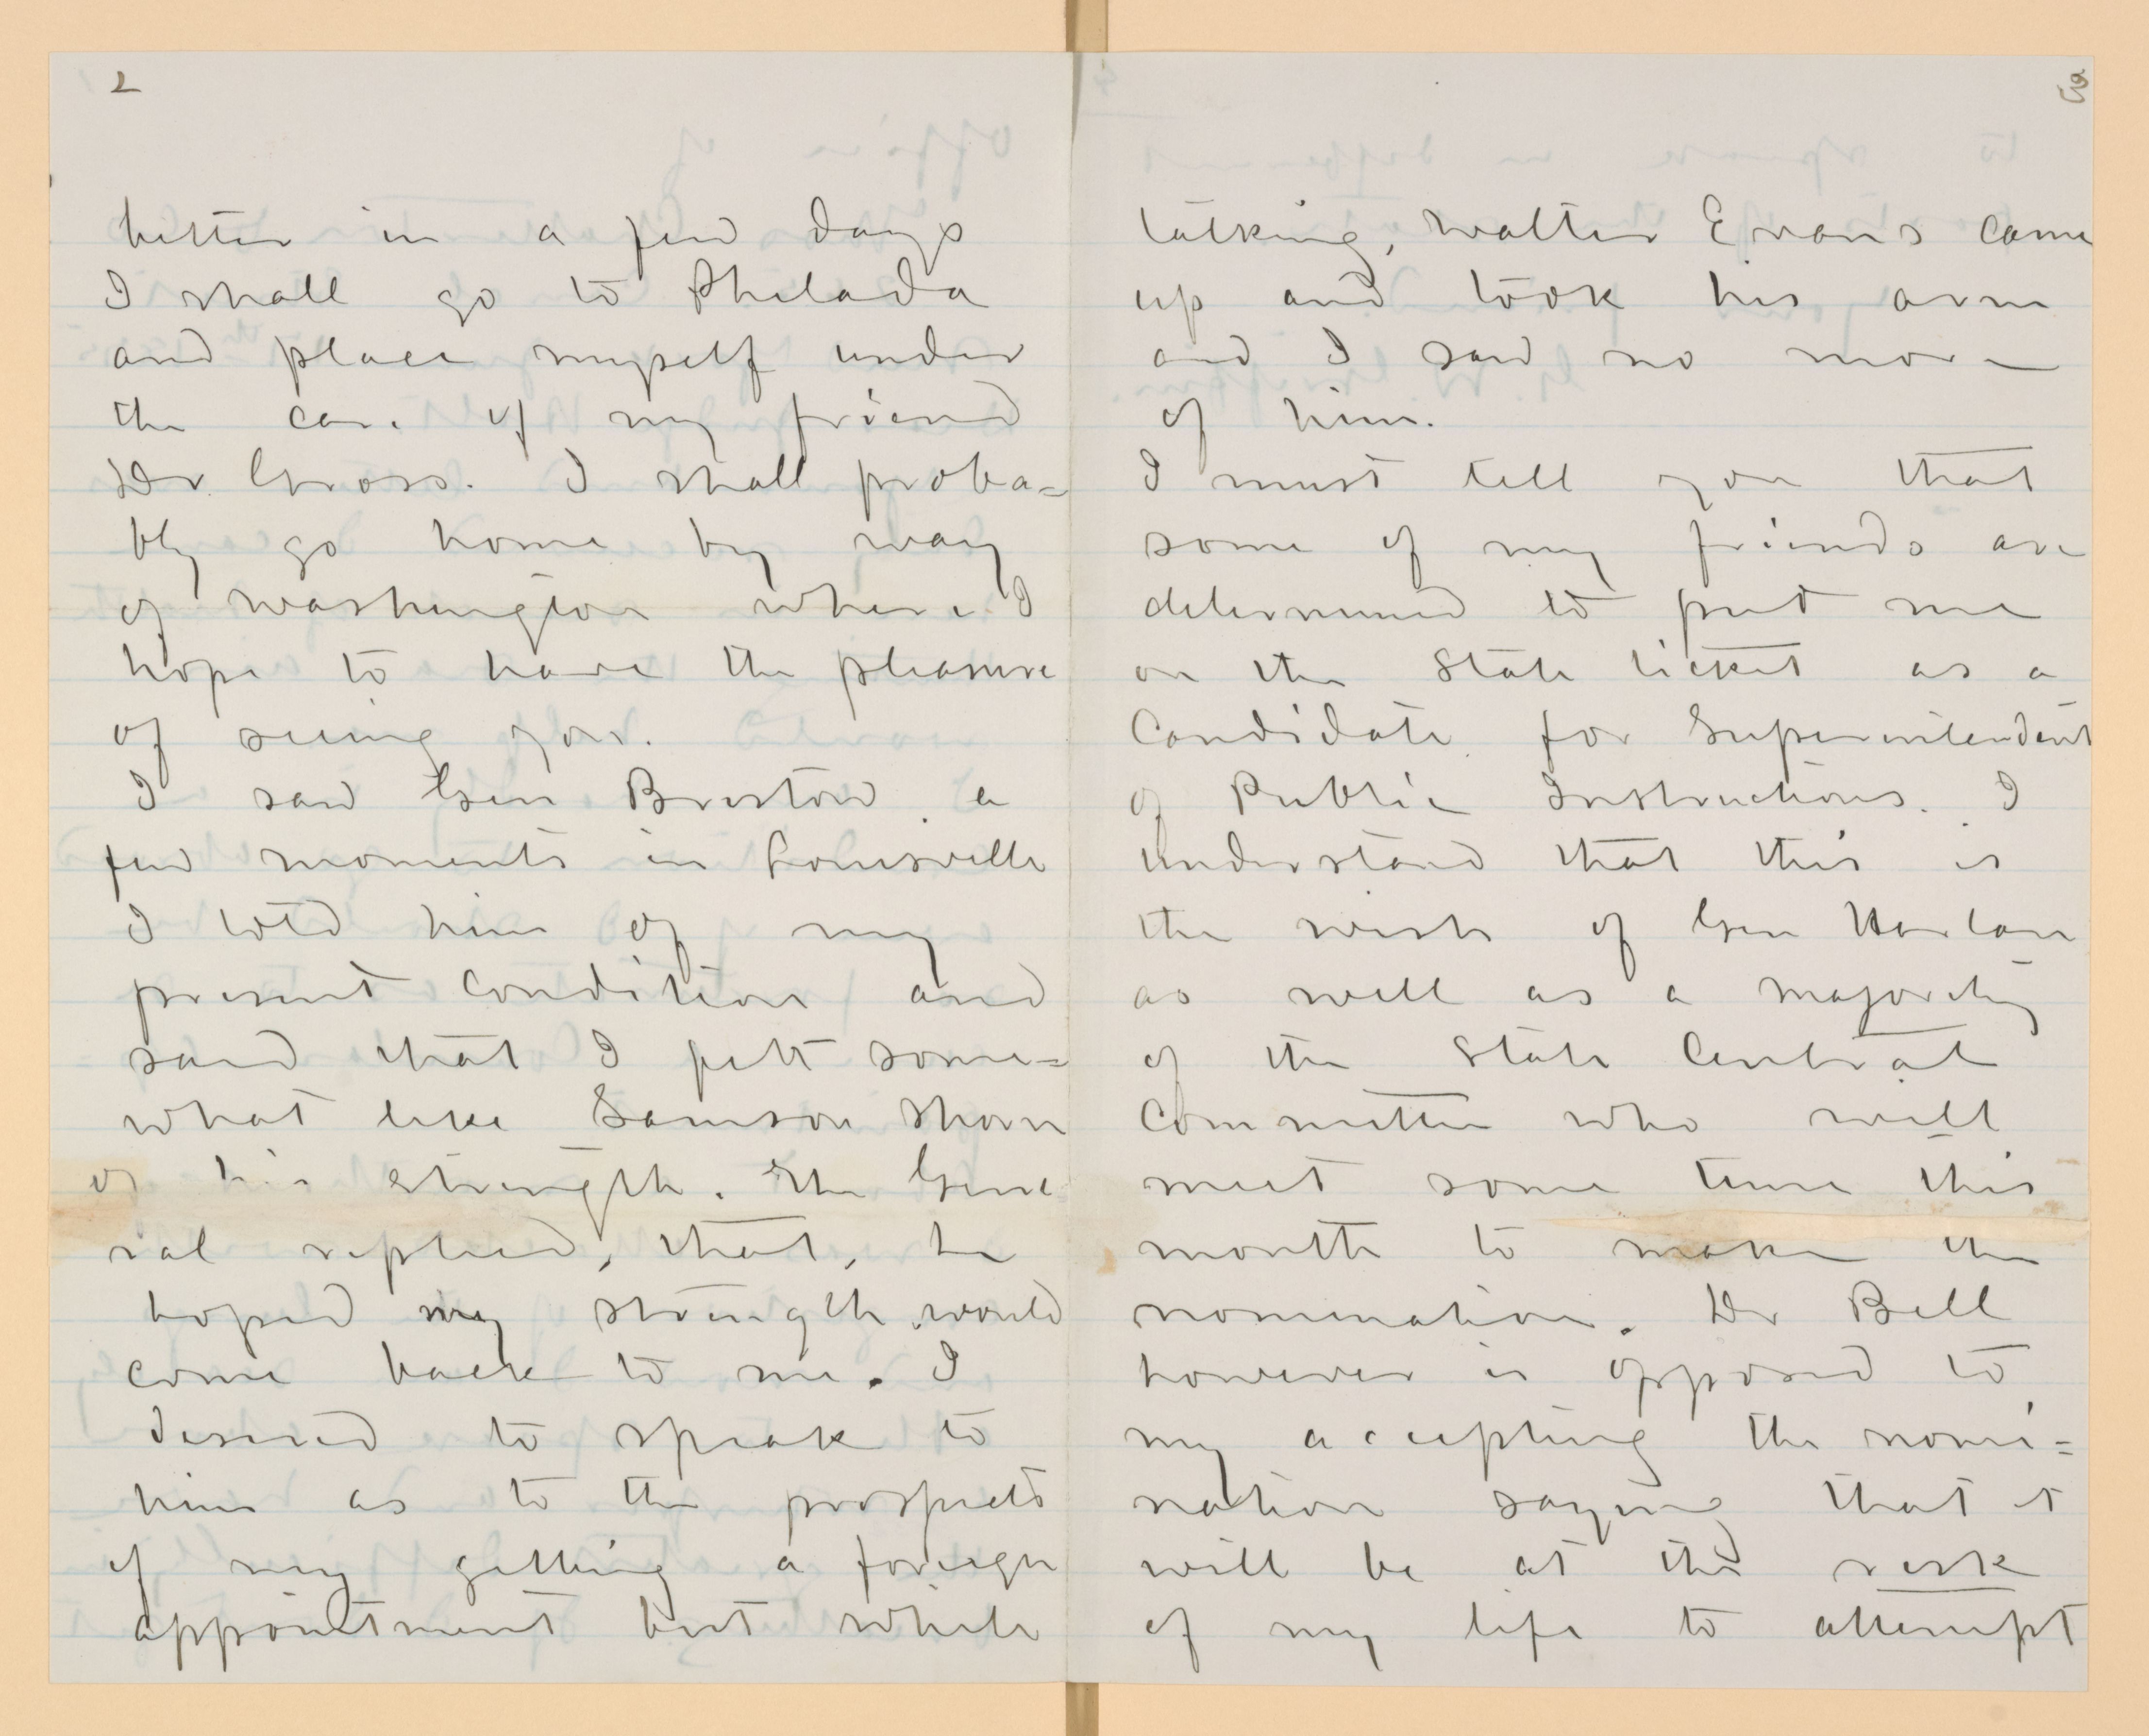 2
better in a few days
I shall go to Philada
and place myself under
the care of my friend
Dr Gross. I shall proba=
bly go home by way
of Washington where I
hope to have the pleasure
of seeing you.
I saw Gen Bristow a
few moments in Louisville
I told him of my
present condition and
said that I felt some=
what like Samson shorn
of his strength. The Gene
ral replied, that, he
hoped my strength would
come back to me. I
desired to speak to
him as to the prospects
of my getting a foreign
appointment but while
3
talking, Walter Evans came
up and took his arm
and I saw no more
of him.
I must tell you that
some of my friends are
determined to put me
on the State ticket as a
Candidate for Superintendent
of Public Instructions. I
understand that this is
the wish of Gen Harlan
as well as a majority
of the State Central
Committee who will
meet some time this
month to make the
nomination. Dr Bell
however is opposed to
my accepting the nomi=
nation saying that it
will be at the risk
of my life to attempt